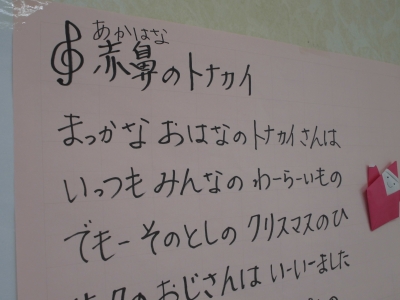 あかはな
赤鼻のトナカイ
まっかな おはなのトナカイさんは
いっつも みんなの わーらーいもの
でもー そのとしの クリスマスのひ
のおじさんは いーいーました